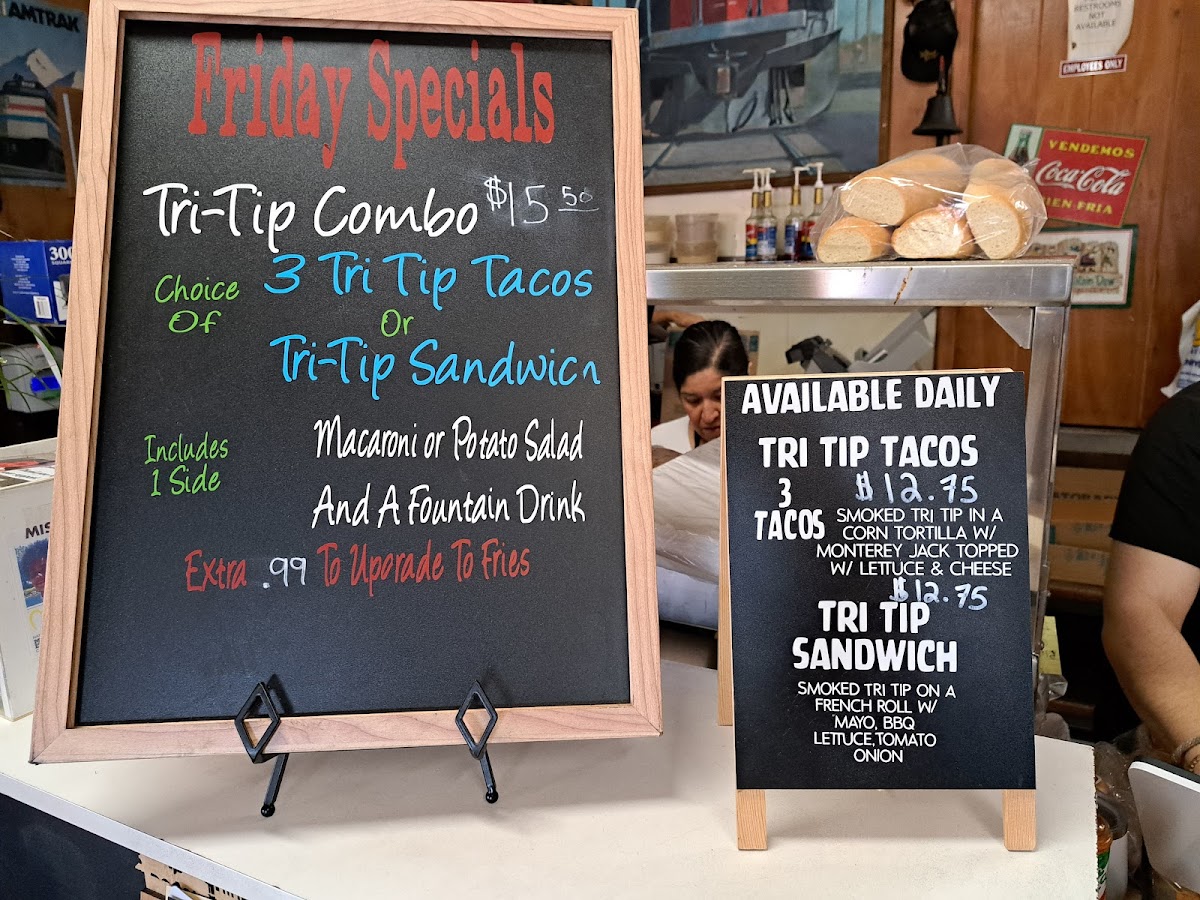 AMTRAK
Friday Specials
Tri-Tip Combo $15 50
Choice
Of
3 Tri Tip Tacos
Or
Tri-Tip Sandwich
Includes
1 Side
Macaroni or Potato Salad
And A Fountain Drink
Extra .99 To Upgrade To Fries
300
RESTROOMS
NOT
AVAILABLE
EMPLOYEES ONLY
VENDEMOS
Coca-Cola
BIEN FRIA
AVAILABLE DAILY
TRI TIP TACOS
3 $12.75
TACOS
SMOKED TRI TIP IN A
CORN TORTILLA W/
MONTEREY JACK TOPPED
W/ LETTUCE & CHEESE
$12.75
TRI TIP
SANDWICH
SMOKED TRI TIP ON A
FRENCH ROLL W/
MAYO, BBQ
LETTUCE,TOMATO
ONION